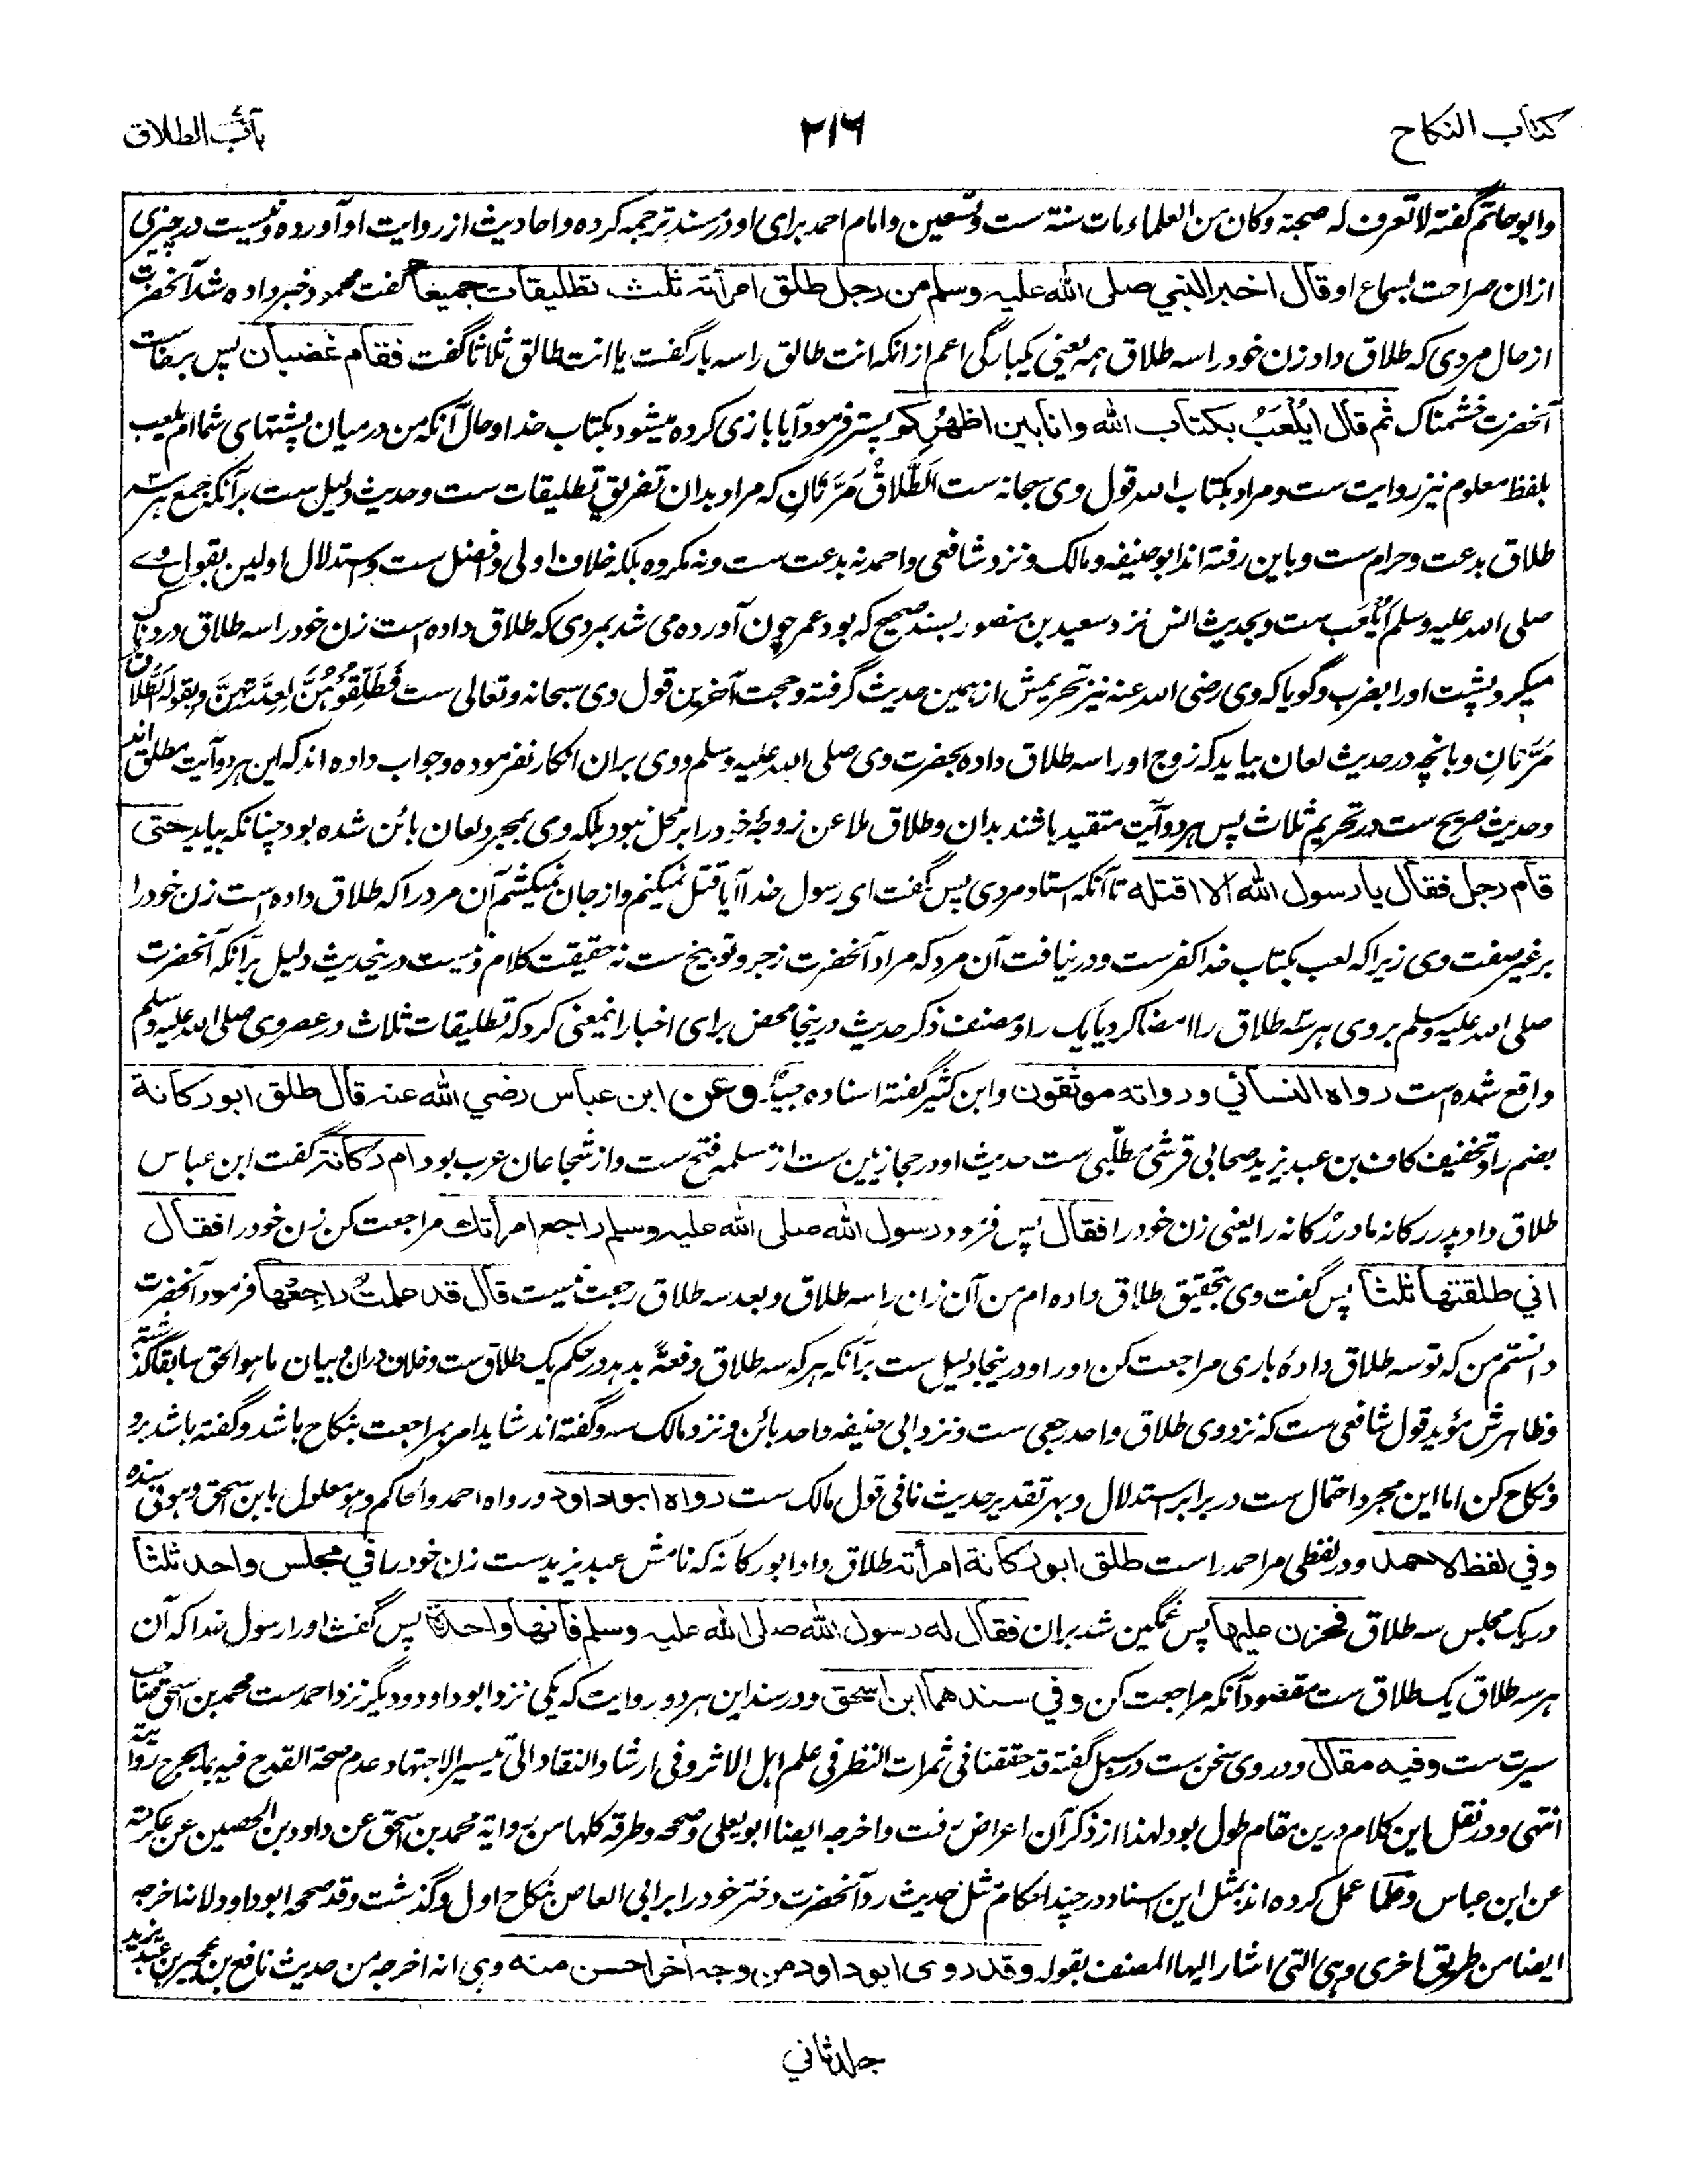 کتاب النکاح
۲۱۶
باب الطلاق
وابوحاتم گفته لا تعرف له صحبة وکان من العلماء مات سنة ست وتسعین وامام احمد برای او در سند ترجمه کرده واحادیث از روایت او آورده ونیست در چیزی
ازان صراحت بسماع او قال اخبر النبي صلى الله عليه وسلم من رجل طلق امرأته ثلث تطليقات جميعا گفت محمود خبر داده شد آنحضرت
از حال مردی که طلاق داد زن خود را سه طلاق همه یعنی یکبارگی اعم ازانکه انت طالق را سه بار گفت یا انت طالق ثلاثا گفت فقام غضبان پس برخاست
آنحضرت خشمناک ثم قال ايُلْعَبُ بکتاب الله وانا بين اظهرکم پستر فرمود آیا بازی کرده میشود بکتاب خدا وحال آنکه من در میان پشتهای شما ام یلعب
بلفظ معلوم نیز روایت ست ومراد بکتاب الله قول وی سبحانه ست اَلطَّلَاقُ مَرَّتَانِ که مراد بدان تفریق تطلیقات ست وحدیث دلیل ست برآنکه جمع هر سه
طلاق بدعت وحرام ست وباین رفته اند ابوحنیفه ومالک ونزد شافعی واحمد نه بدعت ست ونه مکروه بلکه خلاف اولی وافضل ست واستدلال اولین بقول وے
صلی الله علیه وسلم اَیُلْعَب ست وبحدیث انس نزد سعید بن منصور بسند صحیح که بود عمر چون آورده می شد بمردی که طلاق داده است زن خود را سه طلاق دردناک
میکرد پشت اورا بضرب وگویا که وی رضی الله عنه نیز تحریمش از همین حدیث گرفته وحجت آخرین قول وی سبحانه وتعالی ست فَطَلِّقُوْهُنَّ لِعِدَّتِهِنَّ وبقوله اَلطَّلَاقُ
مَرَّتَانِ وبانچه در حدیث لعان بیاید که زوج اورا سه طلاق داده بحضرت وی صلی الله علیه وسلم ووی بران انکار نفرموده وجواب داده اند که این هر دو آیت مطلق اند
وحدیث صریح ست در تحریم ثلاث پس هر دو آیت متقید باشند بدان وطلاق ملاعن زوجهٔ خود را بر محل نبود بلکه وی بمجرد لعان بائن شده بود چنانکه بیاید حتى
قام رجل فقال یا رسول الله الا اقتله تا آنکه استاد مردی پس گفت ای رسول خدا آیا قتل نمیکنم واز جان نمیکشم آن مرد را که طلاق داده است زن خود را
برغیر صفت وی زیرا که لعب بکتاب خدا کفرست ودرنیافت آن مرد که مراد آنحضرت زجر وتوبیخ ست نه حقیقت کلام ونیست درینحدیث دلیل برآنکه آنحضرت
صلی الله علیه وسلم بر وی هر سه طلاق را امضا کرد یا یک را ومصنف ذکر حدیث درینجا محض برای اخبار اینمعنی کرد که تطلیقات ثلاث در عصر وی صلی الله علیه وسلم
واقع شده است رواه النسائي ورواته موثقون وابن کثیر گفته اسناده جیّد وعن ابن عباس رضي الله عنه قال طلق ابورکانة
بضم را وتخفیف کاف بن عبد یزید صحابی قرشی مطلبی ست حدیث او در حجازیین ست از مسلمهٔ فتح ست واز شجاعان عرب بود ام رکانة گفت ابن عباس
طلاق داد پدر رکانه مادر رکانه را یعنی زن خود را فقال پس فرمود رسول الله صلى الله عليه وسلم راجع امرأتك مراجعت کن زن خود را فقال
اني طلقتها ثلثا پس گفت وی بتحقیق طلاق داده ام من آن زن را سه طلاق وبعد سه طلاق رجعت نیست قال قد علمت راجعها فرمود آنحضرت
دانستم من که تو سه طلاق دادهٔ باری مراجعت کن اورا ودرینجا دلیل ست برآنکه هر که سه طلاق دفعةً بدهد در حکم یک طلاق ست وخلاف دران وبیان ما هو الحق سابقا گذشته
وظاهرش مؤید قول شافعی ست که نزد وی طلاق واحد رجعی ست ونزد ابی حنیفه واحد بائن ونزد مالک سه وگفته اند شاید امر بمراجعت بنکاح باشد وگفته باشد برو
ونکاح کن اما این مجرد احتمال ست در برابر استدلال وبهر تقدیر حدیث نافی قول مالک ست رواه ابوداود ورواه احمد والحاکم وهو معلول بابن اسحق وهو فی سنده
وفي لفظ لاحمد ودر لفظی مر احمد راست طلق ابورکانة امرأته طلاق داد ابورکانه که نامش عبد یزید ست زن خود را في مجلس واحد ثلثا
در یک مجلس سه طلاق فحزن عليها پس غمگین شد بران فقال له رسول الله صلى الله عليه وسلم فانها واحدة پس گفت اورا رسول خدا که آن
هر سه طلاق یک طلاق ست مقصود آنکه مراجعت کن وفي سندهما ابن اسحق ودر سند این هر دو روایت که یکی نزد ابوداود ودیگر نزد احمد ست محمد بن اسحق صاحب
سیرت ست وفيه مقال ودر وی سخن ست در سبل گفته قد حققنا فی ثمرات النظر فی علم اهل الاثر وفی ارشاد النقاد الی تیسیر الاجتهاد عدم صحة القدح فیه بما یجرح روایته
انتهی ودر نقل این کلام درین مقام طول بود لهذا از ذکر آن اعراض رفت واخرجه ایضا ابو یعلی وصححه وطرقه کلها من روایة محمد بن اسحق عن داود بن الحصین عن عکرمة
عن ابن عباس وعلما عمل کرده اند بمثل این اسناد در چند احکام مثل حدیث رد آنحضرت دختر خود را بر ابی العاص بنکاح اول وگذشت وقد صححه ابوداود لانه اخرجه
ایضا من طریق اخری وهی التی اشار الیها المصنف بقوله وقد روى ابوداود من وجه آخر احسن منه وهی انه اخرجه من حدیث نافع بن عجیر بن عبد یزید
جلد ثاني